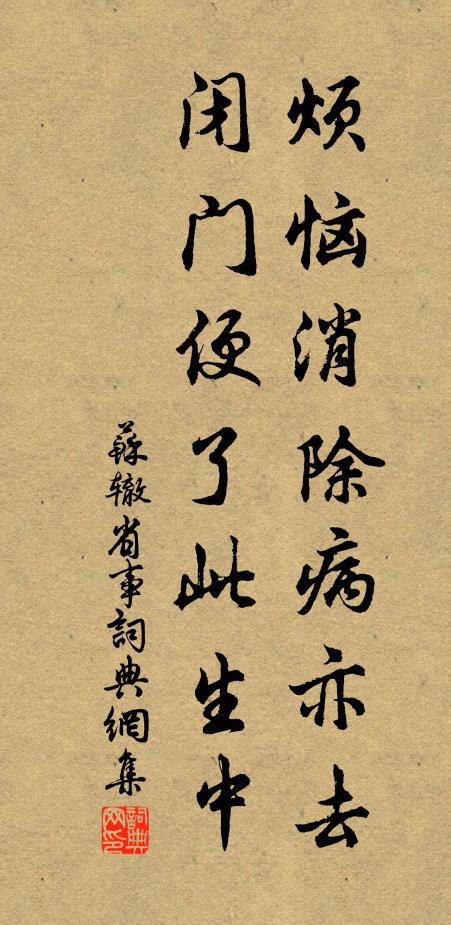 烦恼消除病亦去
闭门便了此生中
蘇辙省事詞典網集
詞典网印